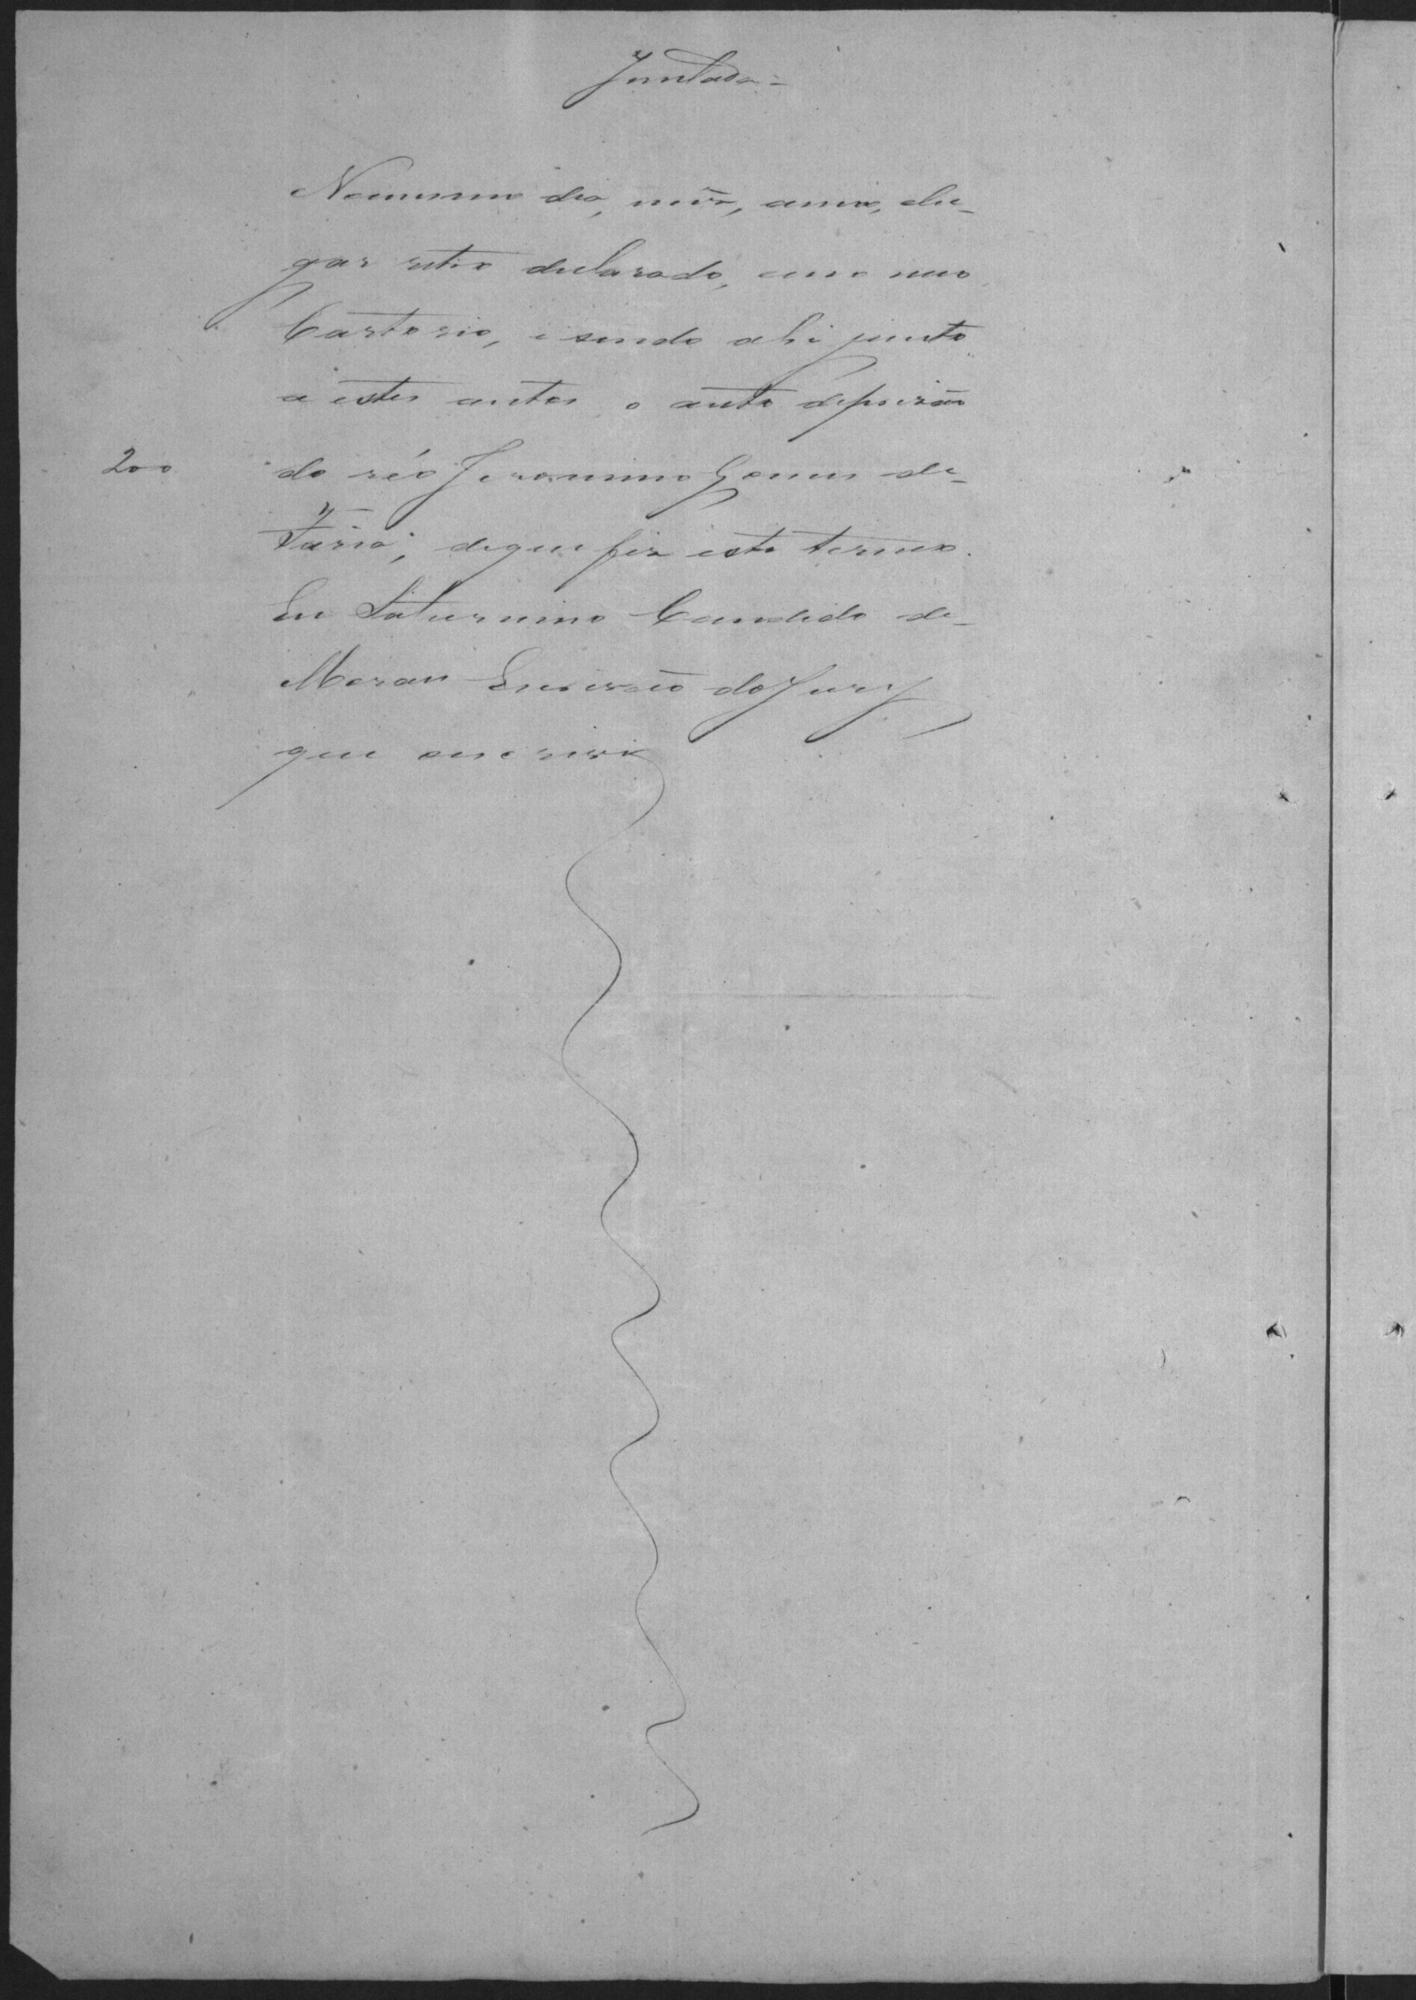 Juntada=
No mesmo dia, mês, anno, e lu-
gar retro declarado, em o meo
Cartorio, e sendo ahi junto
a estes autos o auto de prisão
200 do réo Jeronimo Gomes de-
Faria; de que fiz este termo.
Eu Saturnino Candido de-
Moraes Escrivão do Jury
que escrivi